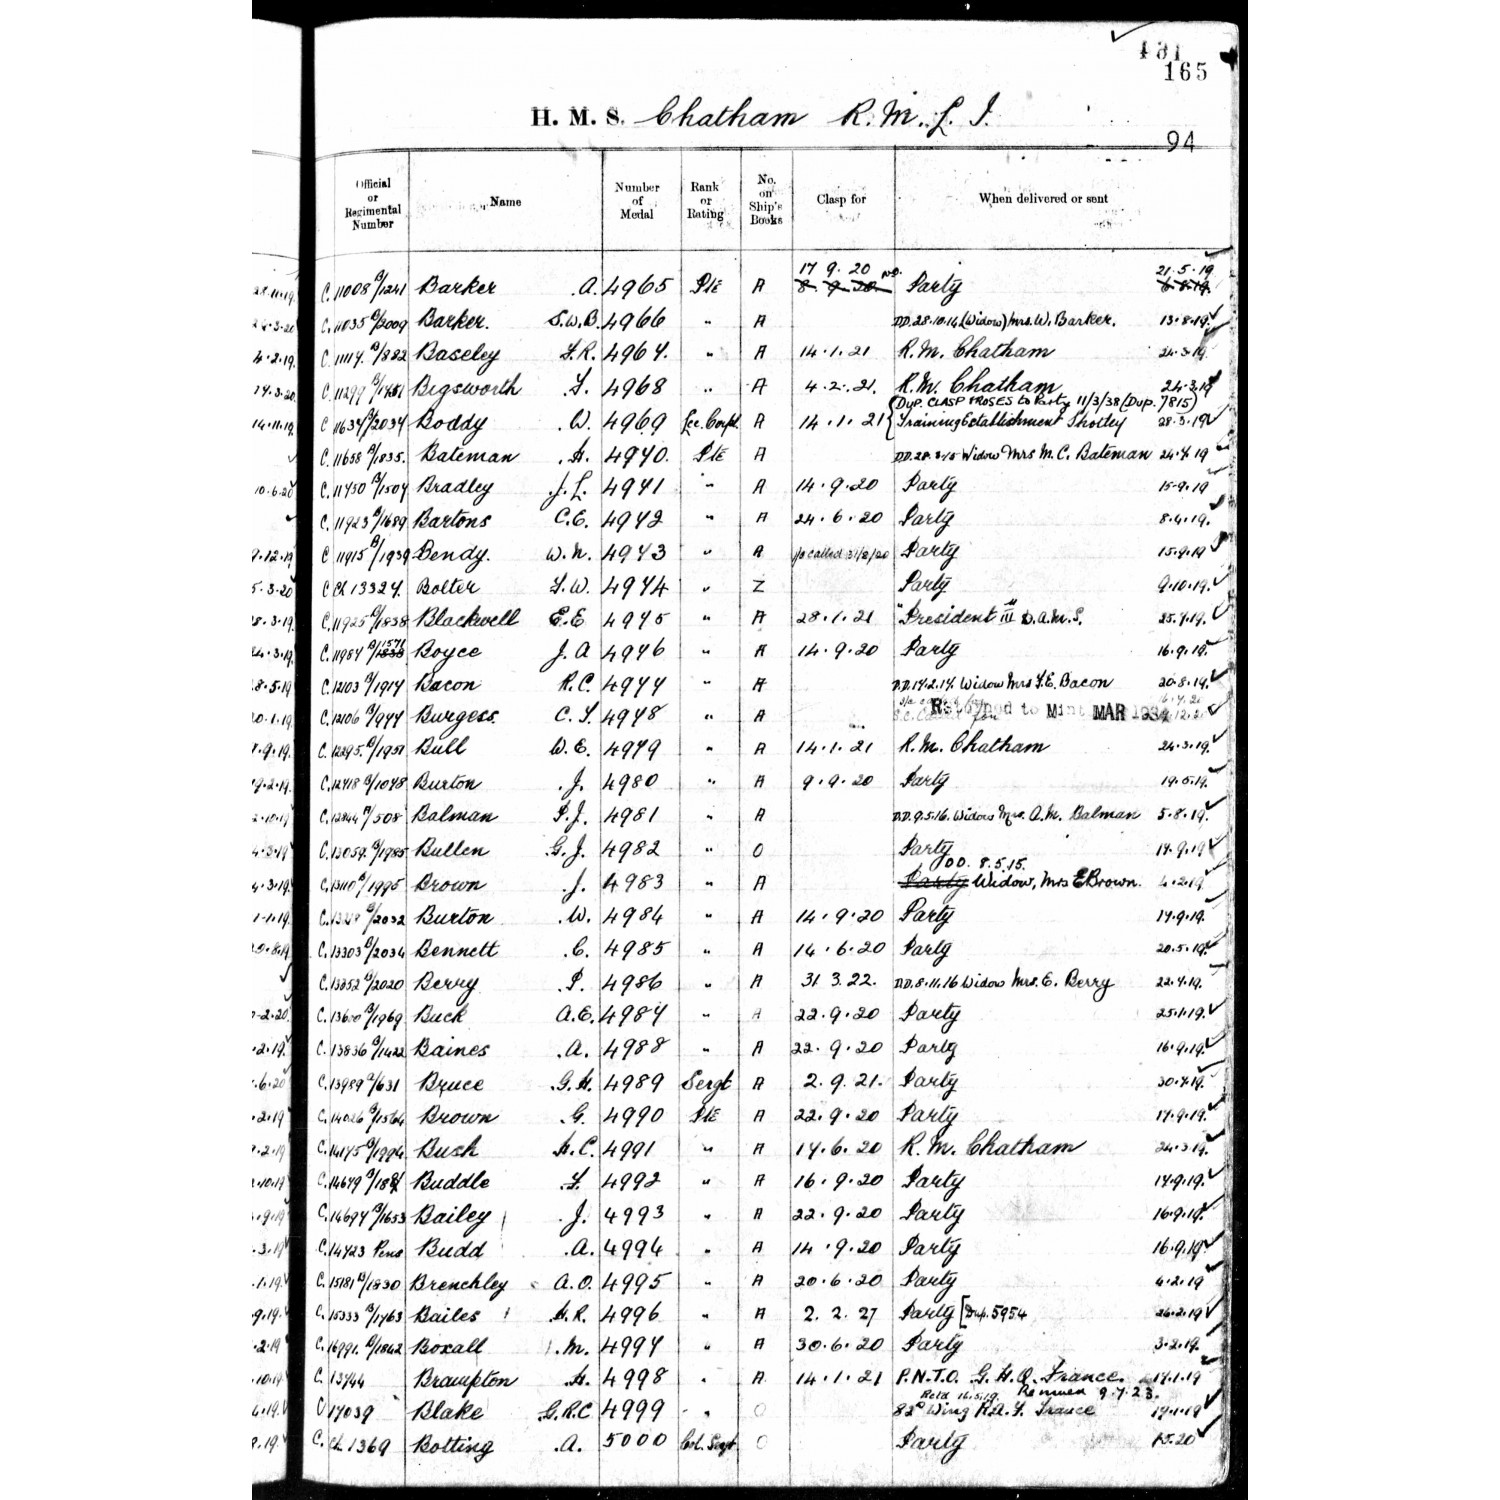 131
165
H. M. S. Chatham R. M. L. I.
94
Official or Regimental Number Name Number of Medal Rank or Rating No. on Ship's Books Clasp for When delivered or sent
17 9. 20 21.5.19
C. 11008 B/1241 Barker A. 4965 Pte A 8. 9 20 No. Party 6.8.19
C. 11035 B/2009 Barker. S.W.B. 4966 " A DD.28.10.14 (Widow) Mrs. W. Barker. 13.8.19
C. 11117. B/882 Baseley F.R. 4967. " A 14.1.21 R.M. Chatham 24.3.19.
C. 11299 B/1451 Bigsworth F. 4968 " A 4.2.21. R.M. Chatham 24.3.19
(Dup. CLASP + ROSES to Party 11/3/38 (Dup. 7815)
C 11634 B/2034 Boddy W. 4969 Lce. Corpl. A 14.1.21 Training Establishment Shotley 28.3.19
C. 11658 B/1835. Bateman H. 4970. Pte A DD.28.3.15 Widow Mrs M. C. Bateman 24.4.19
C. 11750 B/1507 Bradley J. L. 4971 " A 14.9.20 Party 15.9.19
C. 11923 B/1689 Bartons C.E. 4972 " A 24.6.20 Party 8.4.19.
C 11915 B/1939 Bendy. W.N. 4973 " A s/c called 31/8/20 Party 15.9.19
C Ch 13327. Bolter F.W. 4974 " Z Party 9.10.19.
C. 11925 B/1838 Blackwell E.E 4975 " A 28.1.21 "President III" D.A.M.S. 25.7.19.
C. 11987 B/1838 1571 Boyce J. A 4976 " A 14.9.20 Party 16.9.19.
C. 12103 B/1917 Bacon R.C. 4977 " A DD.17.2.17. Widow Mrs F.E. Bacon 20.8.19.
C. 12106 B/977 Burgess. C. F. 4978 " A Returned to Mint MAR 1934
C. 12295. B/1951 Bull W.E. 4979 " A 14.1.21 R.M. Chatham 24.3.19.
C. 12718 B/1078 Burton J. 4980 " A 9.9.20 Party 19.5.19.
C. 12844 B/508 Balman P.J. 4981 " A DD.9.5.16. Widow Mrs. A.M. Balman 5.8.19.
C. 13059. B/1985 Bullen G.J. 4982 " O Party 17.9.19
DD. 8.5.15.
C. 13110 B/1995 Brown J. 4983 " A Party Widow, Mrs E Brown. 4.2.19.
B/2032 Burton W. 4984 " A 14.9.20 Party 17.9.19.
C. 13303 B/2034 Bennett C. 4985 " A 14.6.20 Party 20.5.19.
C. 13352 B/2020 Berry P. 4986 " A 31 3.22. DD.8.11.16 Widow Mrs. E. Berry 22.7.19.
C. 13600 B/1969 Buck A.E. 4987 " A 22.9.20 Party 25.1.19.
C. 13836 B/1422 Baines A. 4988 " A 22.9.20 Party 16.9.19.
C. 13989 B/631 Bruce G.H. 4989 Sergt A 2.9.21. Party 30.7.19.
C. 14026 B/1564 Brown G. 4990 Pte A 22.9.20 Party 17.9.19.
C. 14175 B/1994 Bush H.C. 4991 " A 17.6.20 R.M. Chatham 24.3.19.
C. 14679 Buddle F. 4992 " A 16.9.20 Party 17.9.19.
C. 14697 B/1653 Bailey J. 4993 " A 22.9.20 Party 16.9.19.
C. 14723 Pens Budd A. 4994 " A 14.9.20 Party 16.9.19.
C. 15181 B/1830 Brenchley A.O. 4995 " A 20.6.20 Party 4.2.19
C. 15333 B/1763 Bailes H.R. 4996 " A 2. 2. 27 Party [Dup. 5954 26.2.19
C. 16991. B/1842 Boxall M. 4997 " A 30.6.20 Party 3.2.19.
C. 13744 Brampton H. 4998 " A 14.1.21 P.N.T.O. G.H.Q. France. 17.1.19
Retd 16.5.19. Re issued 9.7.23.
17039 Blake G.R.C 4999 " O 82nd Wing R.A.F. France 17.1.19
C. Ch. 1369 Botting A. 5000 Col. Sergt O Party 1.5.20